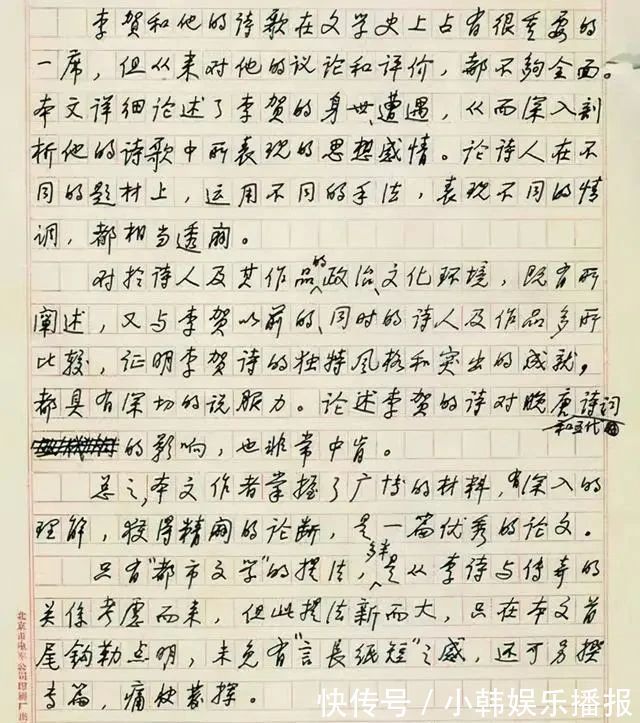 李贺和他的诗歌在文学史上占有很重要的
一席，但从来对他的议论和评价，都不够全面。
本文详细论述了李贺的身世、遭遇，从而深入剖
析他的诗歌中所表现的思想感情。论诗人在不
同的题材上，运用不同的手法，表现不同的情
调，都相当透阔。
对於诗人及其作品的政治、文化环境，既有所
阐述，又与李贺以前的、同时的诗人及作品多所
比较，证明李贺诗的独特风格和突出的成就，
都具有深切的说服力。论述李贺的诗对晚唐诗词
和五代
的影响，也非常中肯。
总之，本文作者掌握了广博的材料，有深入的
理解，获得精阔的论断，是一篇优秀的论文。
只有“都市文学”的提法，多半是从李诗与传奇的
关系考虑而来，但此提法新而大，只在本文首
尾钩勒点明，未免有“言長纸短”之感，还可另撰
专篇，痛快发挥。
北京市电车公司印刷厂出
快传号／小韩娱乐播报